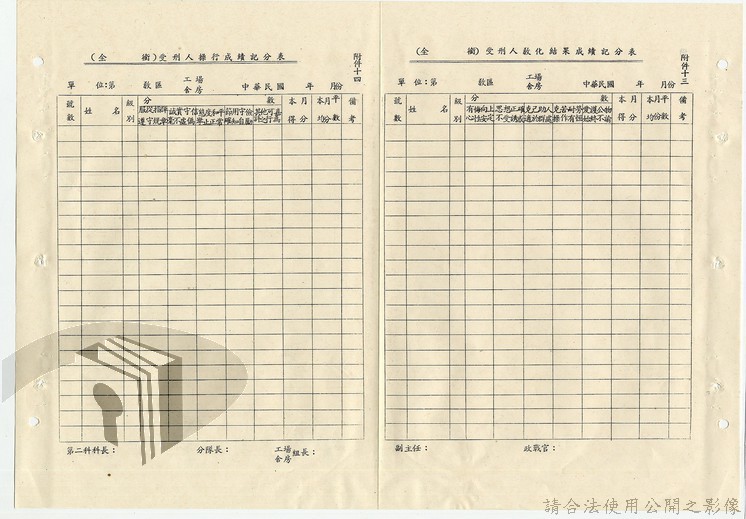 附件十三
(全　　銜)受刑人教化結果成績記分表
單　位：第　　教區　工場
舍房　中華民國　年　月份
號數　姓　名　級別　分　數　本月得分　本月份平均分數　備考
有悔向上
心吐安定
思想正確
不受誘惑
克己助人
適於群處
克苦耐勞
操作有恒
愛護公物
始終不渝
副主任：　　政戰官：
附件十四
(全　　銜)受刑人操行成績記分表
單　位：第　　教區　工場
舍房　中華民國　年　月份
號數　姓　名　級別　分　數　本月得分　本月份平均分數　備考
服從指揮
遵守規律
誠實守信
毫不虛偽
態度和平
舉止正常
節用守儉
第二科科長：　　分隊長：　　工場
舍房　組長：
請合法使用公開之影像